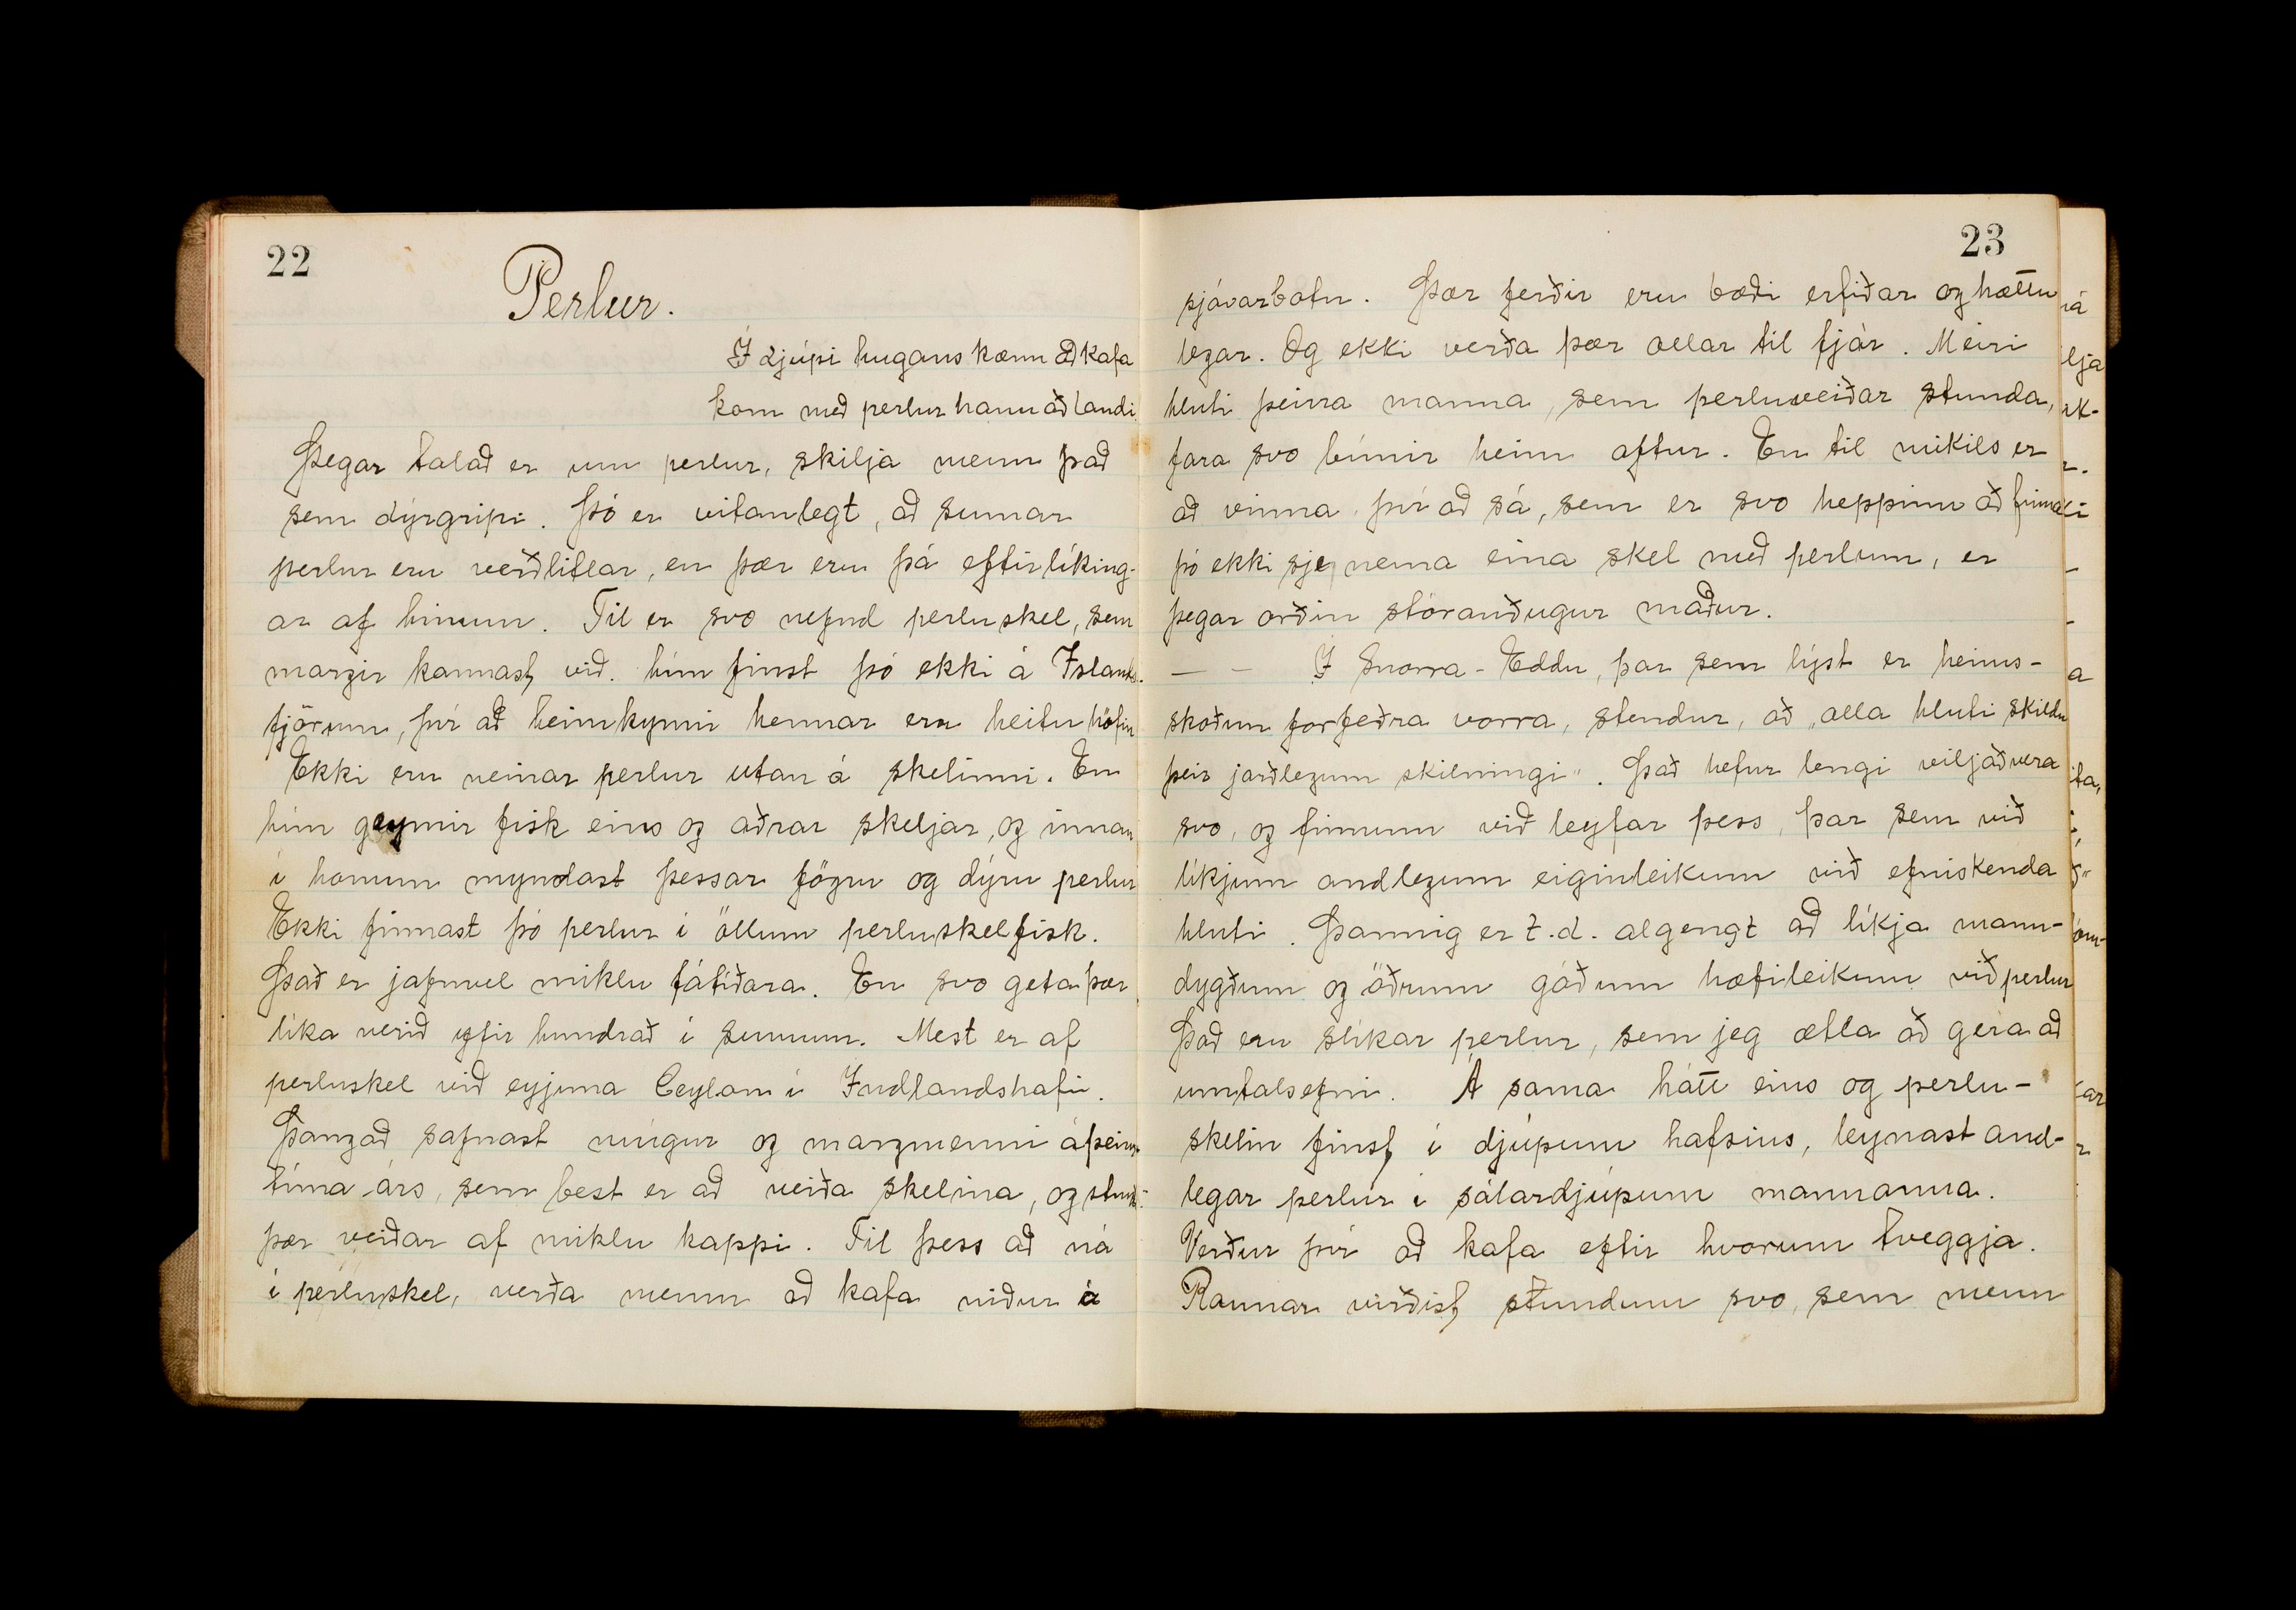 22
Perlur.
Í djúpi hugans kænn að kafa
kom með perlur hann að landi
Þegar talað er um perlur, skilja menn það
sem dýrgripi. Þó er vitanlegt, að sumar
perlur eru verðlitlar, en þær eru þá eftirlíking-
ar af hinum. Til er svo nefnd perluskel, sem
margir kannast við. hún finst þó ekki á Islands-
fjörum, því að heimkynni hennar eru heitu höfin
Ekki eru neinar perlur utan á skelinni. En
hún geymir fisk eins og aðrar skeljar, og innan
í honum myndast þessar fögru og dýru perlur
Ekki finnast þó perlur í öllum perluskelfisk.
Það er jafnvel miklu fátíðara. En svo geta þær
líka verið yfir hundrað í sumum. Mest er af
perluskel við eyjuna Ceylon í Indlandshafi.
Þangað safnast múgur og margmenni á þeim
tíma árs, sem best er að veiða skelina, og stunda
þær veiðar af miklu kappi. Til þess að ná
í perluskel, verða menn að kafa niður á
23
sjávarbotn. Þær ferðir eru bæði erfiðar og hættu
legar. Og ekki verða þær allar til fjár. Meiri
hluti þeirra manna, sem perluveiðar stunda,
fara svo búnir heim aftur. En til mikils er
að vinna því að sá, sem er svo heppinn að finna
þó ekki sje nema eina skel með perlum, er
þegar orðin stórauðugur maður.
— — Í Snorra-Eddu, þar sem lýst er heims-
skoðun forfeðra vorra, stendur, að „alla hluti skildu
þeir jarðlegum skilningi". Það hefur lengi viljað vera
svo, og finnum við leyfar þess, þar sem við
líkjum andlegum eiginleikum við efniskenda
hluti. Þannig er t.d. algengt að líkja mann-
dygðum og öðrum góðum hæfileikum við perlur
Það eru slíkar perlur, sem jeg ætla að gera að
umtalsefni. Á sama hátt eins og perlu-
skelin finst í djúpum hafsins, leynast and-
legar perlur í sálardjúpum mannanna.
Verður því að kafa eftir hvorum tveggja.
Raunar virðist stundum svo, sem menn